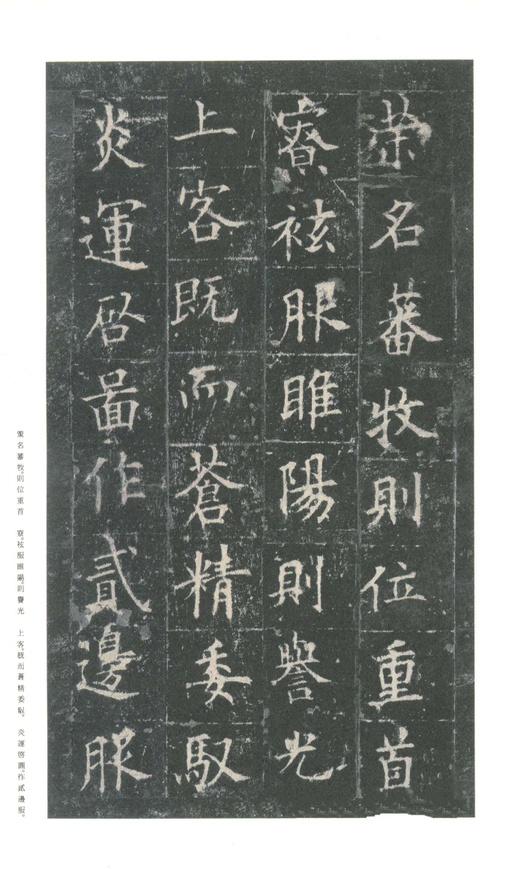 策名蕃牧則位重首
寮袨服睢陽則譽光
上客既而蒼精委馭
炎運啓圖作貳邊服
策名蕃牧。則位重首 寮。袨服睢陽。則譽光 上客。既而蒼精委馭。 炎運啓圖。作貳邊服。